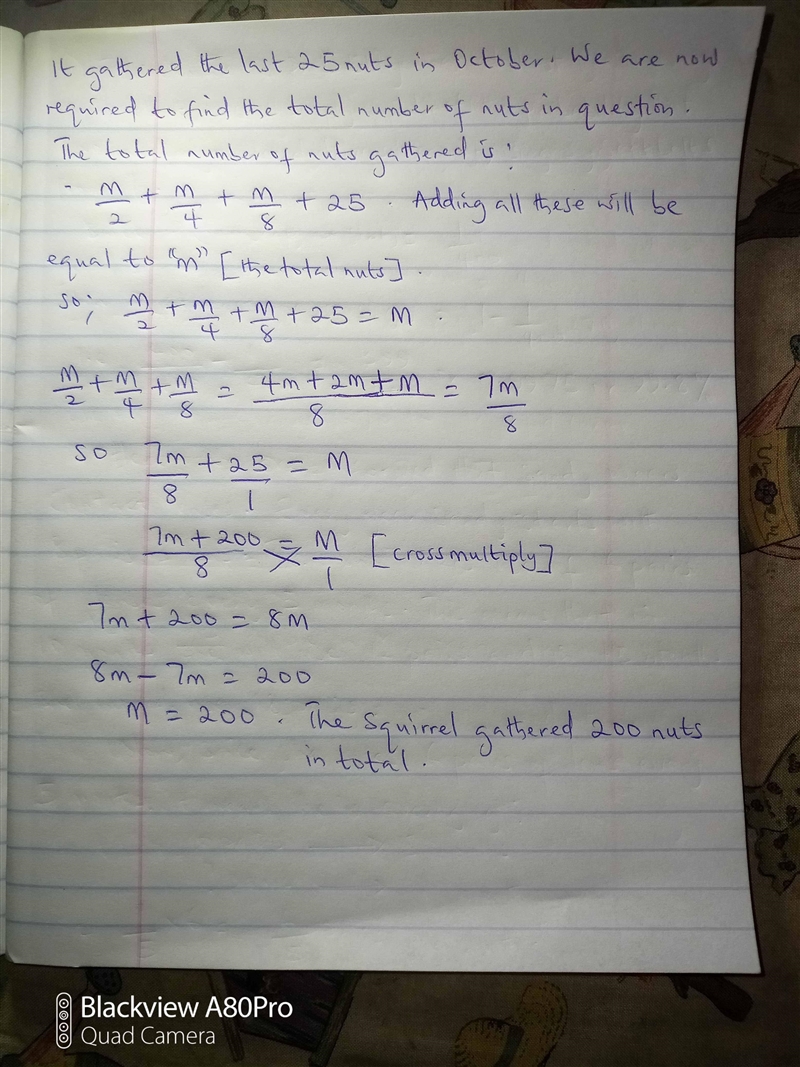 It gathered the last 25 nuts in October. We are now
required to find the total number of nuts in question.
The total number of nuts gathered is:
- m/2 + m/4 + m/8 + 25. Adding all these will be
equal to "m" [the total nuts].
so; m/2 + m/4 + m/8 + 25 = m.
m/2 + m/4 + m/8 = (4m + 2m + m)/8 = 7m/8
so 7m/8 + 25/1 = m
(7m + 200)/8 = m/1 [cross multiply]
7m + 200 = 8m
8m - 7m = 200
m = 200. The Squirrel gathered 200 nuts
in total.
Blackview A80Pro
Quad Camera